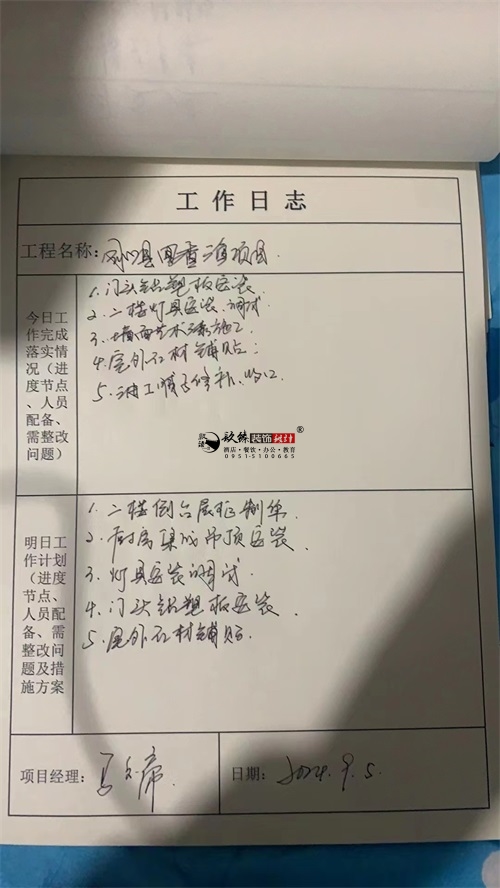 工作日志
工程名称:
今日工作完成落实情况(进度节点、人员配备、需整改问题)
1.门头铝塑板安装
2.二楼灯具安装、调试
3.墙面艺术漆施工
4.室外石材铺贴
5.油工修补、收口
玖臻装饰设计®
酒店·餐饮·办公·教育
0951-5100665
明日工作计划(进度节点、人员配备、需整改问题及措施方案
1.二楼
2.厨房集成吊顶安装
3.灯具安装调试
4.门头铝塑板安装
5.室外石材铺贴
项目经理:
日期: 2024.9.5.